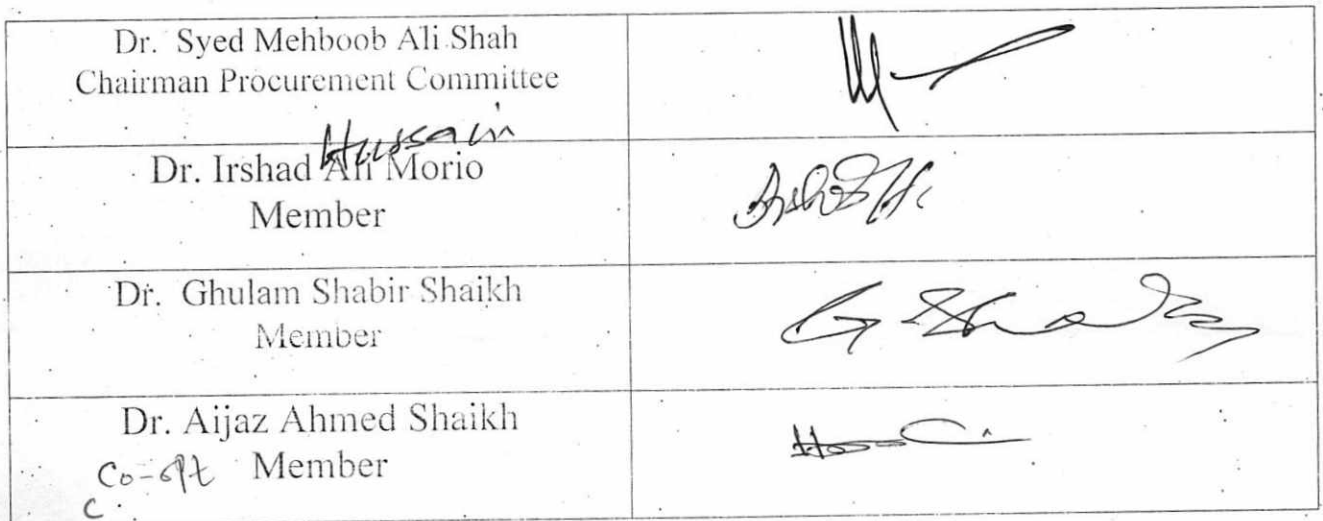 Dr. Syed Mehboob Ali Shah
Chairman Procurement Committee
Hussain
Dr. Irshad Ali Morio
Member
Dr. Ghulam Shabir Shaikh
Member
Dr. Aijaz Ahmed Shaikh
Co-opt Member